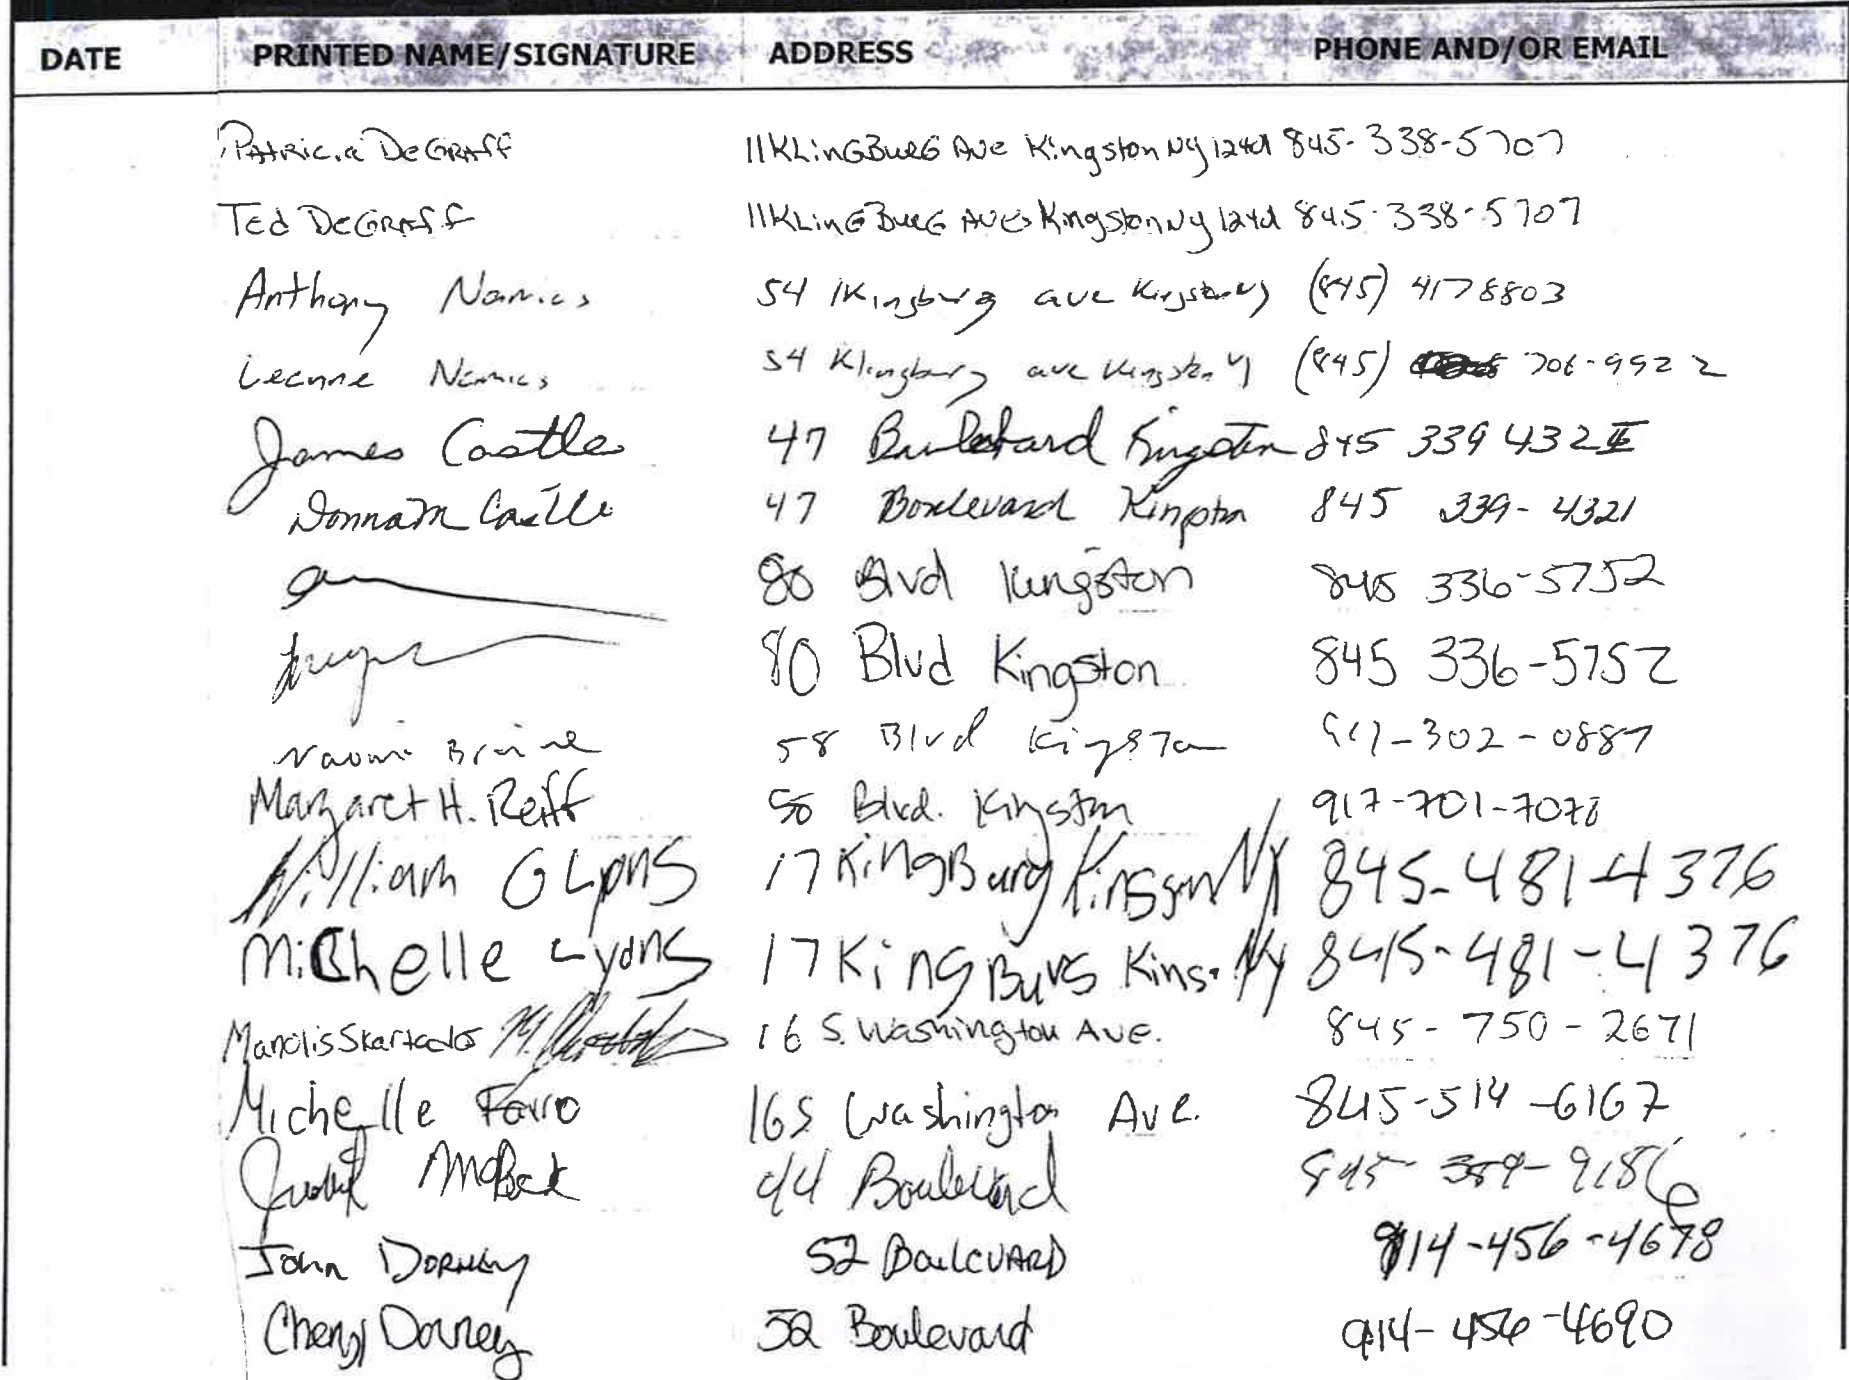 DATE PRINTED NAME/SIGNATURE ADDRESS PHONE AND/OR EMAIL
Patricia DeGraff 11 KLinGBurG Ave Kingston NY 12401 845-338-5707
Ted DeGraff 11 KLinGBurG Ave Kingston NY 12401 845-338-5707
Anthony 54 Klingburg ave Kingston NY (845) 4178803
Leanne 54 Klingburg ave Kingston NY (845) 706-9922
James Castle 47 Boulevard Kingston 845 339 432
Donna M Castle 47 Boulevard Kingston 845 339-4321
80 Blvd Kingston 845 336-5752
80 Blvd Kingston 845 336-5752
Naomi 58 Blvd Kingston 917-302-0887
Margaret H. Reiff Blvd. Kingston 917-701-7078
William G Lyons 17 KingBurg NY 845-481-4376
Michelle Lyons 17 KingBurg Kins. NY 845-481-4376
Manolis 16 S. Washington AVE. 845-750-2671
Michelle 16 S Washington Ave. 845-514-6167
44 Boulevard 845- -9186
John Dorney 52 Boulevard 914-456-4678
Cheryl Dorney 52 Boulevard 914-456-4690